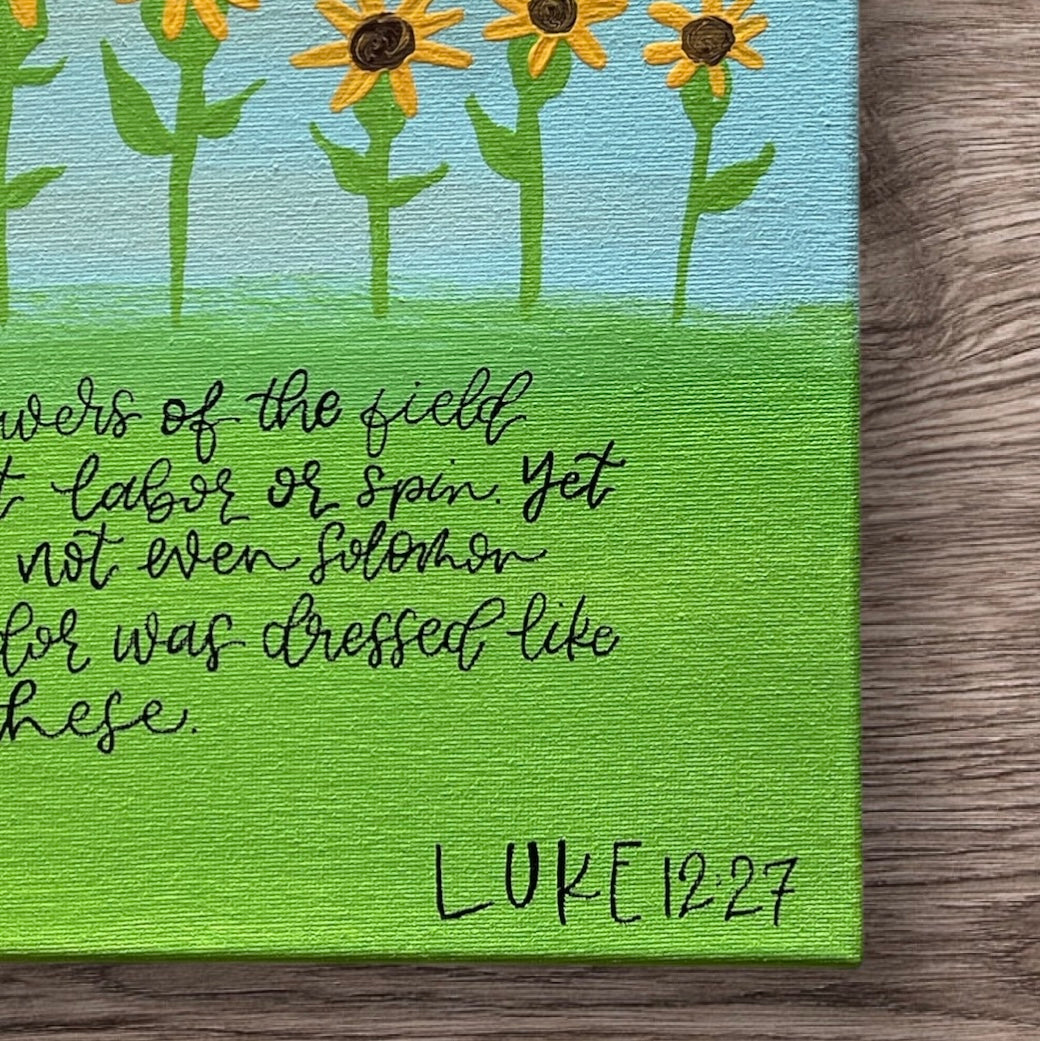 wers of the field
t labor or spin. Yet
not even Solomon
dor was dressed like
these.
LUKE 12:27